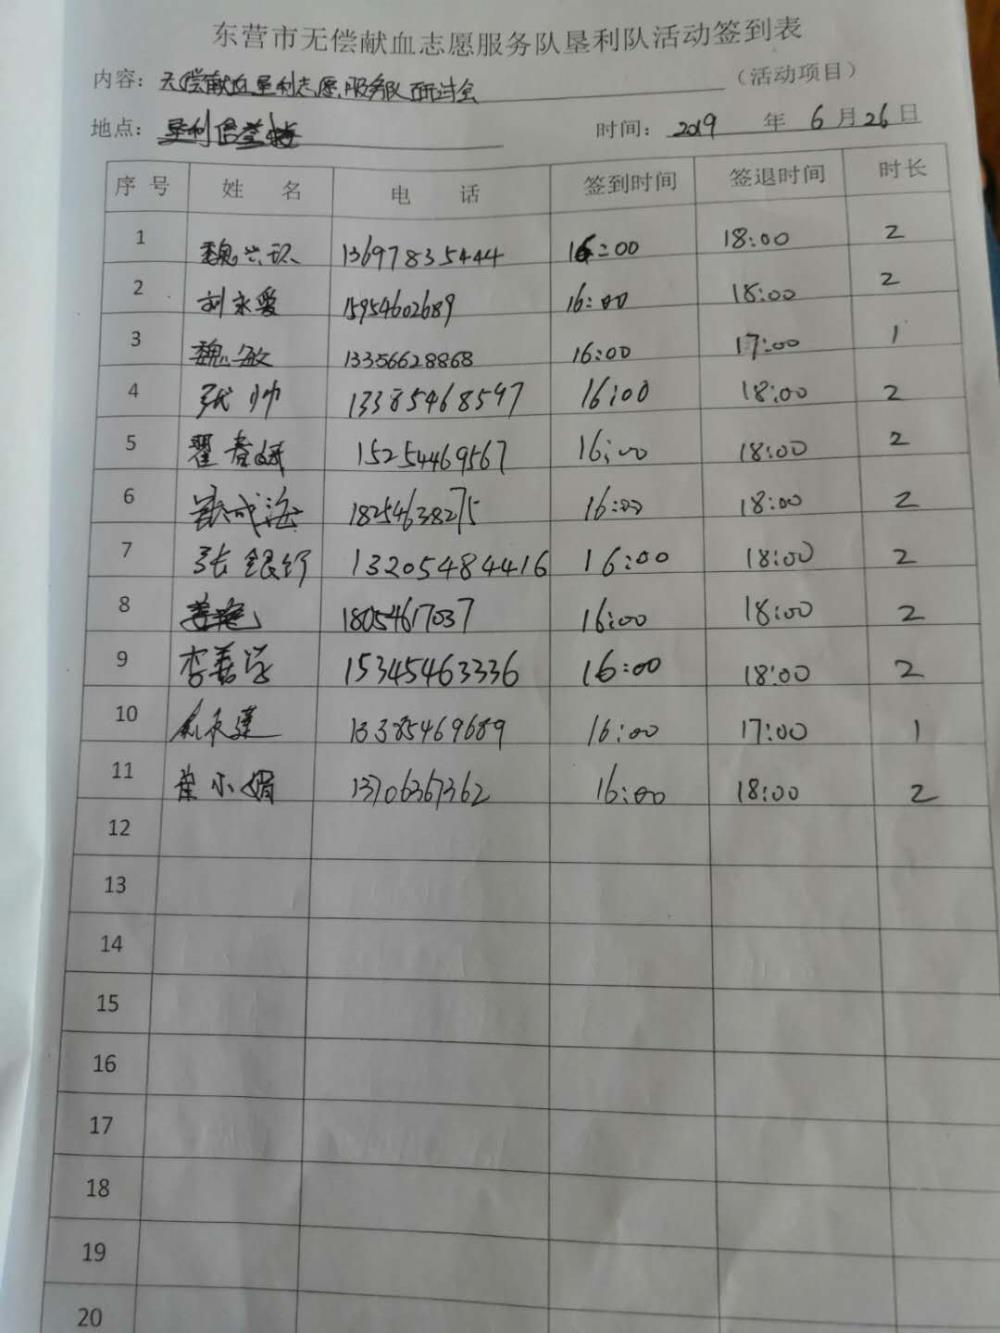 东营市无偿献血志愿服务队垦利队活动签到表
内容: 无偿献血垦利志愿服务队研讨会 (活动项目)
地点: 垦利 时间: 2019 年 6 月 26 日
序号 姓名 电话 签到时间 签退时间 时长
1 魏兴 13697835444 16:00 18:00 2
2 刘永爱 15954602689 16:00 18:00 2
3 魏敏 13356628868 16:00 17:00 1
4 张帅 13385468597 16:00 18:00 2
5 翟春 15254469567 16:00 18:00 2
6 成海 18254638275 16:00 18:00 2
7 张银行 13205484416 16:00 18:00 2
8 18054617037 16:00 18:00 2
9 李善学 15345463336 16:00 18:00 2
10 13385469689 16:00 17:00 1
11 崔小娟 13706367362 16:00 18:00 2
12
13
14
15
16
17
18
19
20